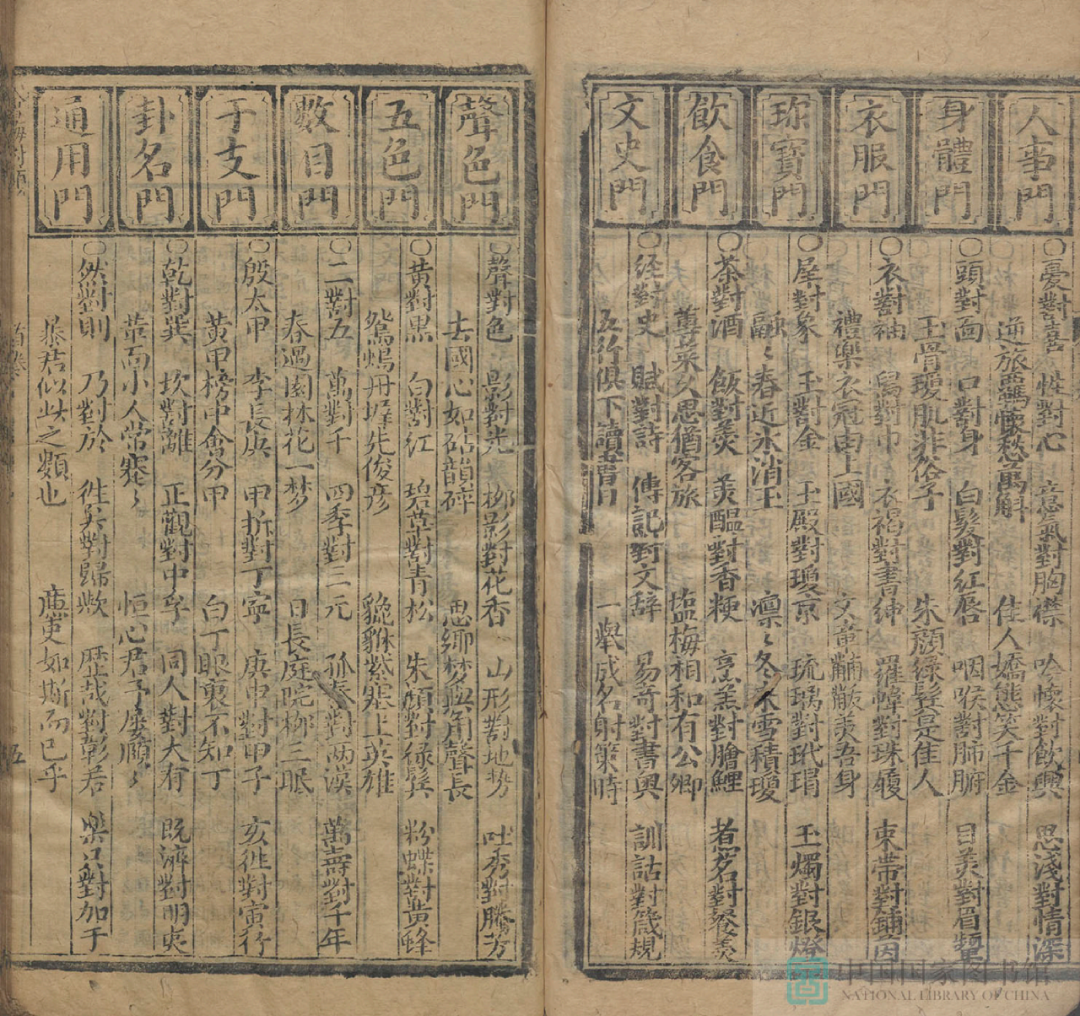 人事門
○憂對喜　性對心　意氣對胸襟　吟懷對飲興　思淺對情深
逆旅羈懷愁萬斛　佳人嬌態笑千金
身體門
○頭對面　口對身　白髮對紅唇　咽喉對肺腑　目美對眉顰
玉骨瓊肌非俗子　朱顏綠鬢是佳人
衣服門
○衣對袖　舄對巾　衣褐對書紳　羅幃對珠履　束帶對鋪茵
禮樂衣冠由上國　文章黼黻美吾身
珎寶門
○犀對象　玉對金　玉殿對瓊京　琉璃對玳瑁　玉燭對銀燈
融〻春近氷消玉　凛〻冬來雪積瓊
飲食門
○茶對酒　飯對羹　羹醞對香粳　烹羔對膾鯉　煮茗對餐羹
蓴菜久思猶客旅　塩梅相和有公卿
文史門
○経對史　賦對詩　傳記對文辞　易竒對書奥　訓詁對箴規
五行俱下讀書日　一舉成名射策時
聲色門
○聲對色　影對光　柳影對花香　山形對地勢　吐秀對騰芳
去國心如砧韻碎　思鄉梦與角聲長
五色門
○黄對黒　白對紅　碧草對青松　朱顏對緑鬓　粉蝶對黄蜂
鴛鴻丹墀先俊彦　貔貅紫塞上英雄
數目門
○二對五　萬對千　四季對三元　孤秦對两漢　萬壽對千年
春過園林花一梦　日長庭院柳三眠
干支門
○殷太甲　李長庚　甲拆對丁寧　庚申對甲子　亥徙對寅行
黄甲榜中會分甲　白丁眼裏不知丁
卦名門
○乾對巽　坎對離　正觀對中孚　同人對大有　既濟對明夷
革面小人常蹇〻　恒心君子屡順〻
通用門
○然對則　乃對於　徃矣對歸歟　歴哉對彰若　樂只對加于
暴君似此之類也　廉吏如斯而已乎
五
中国国家图书馆
NATIONAL LIBRARY OF CHINA